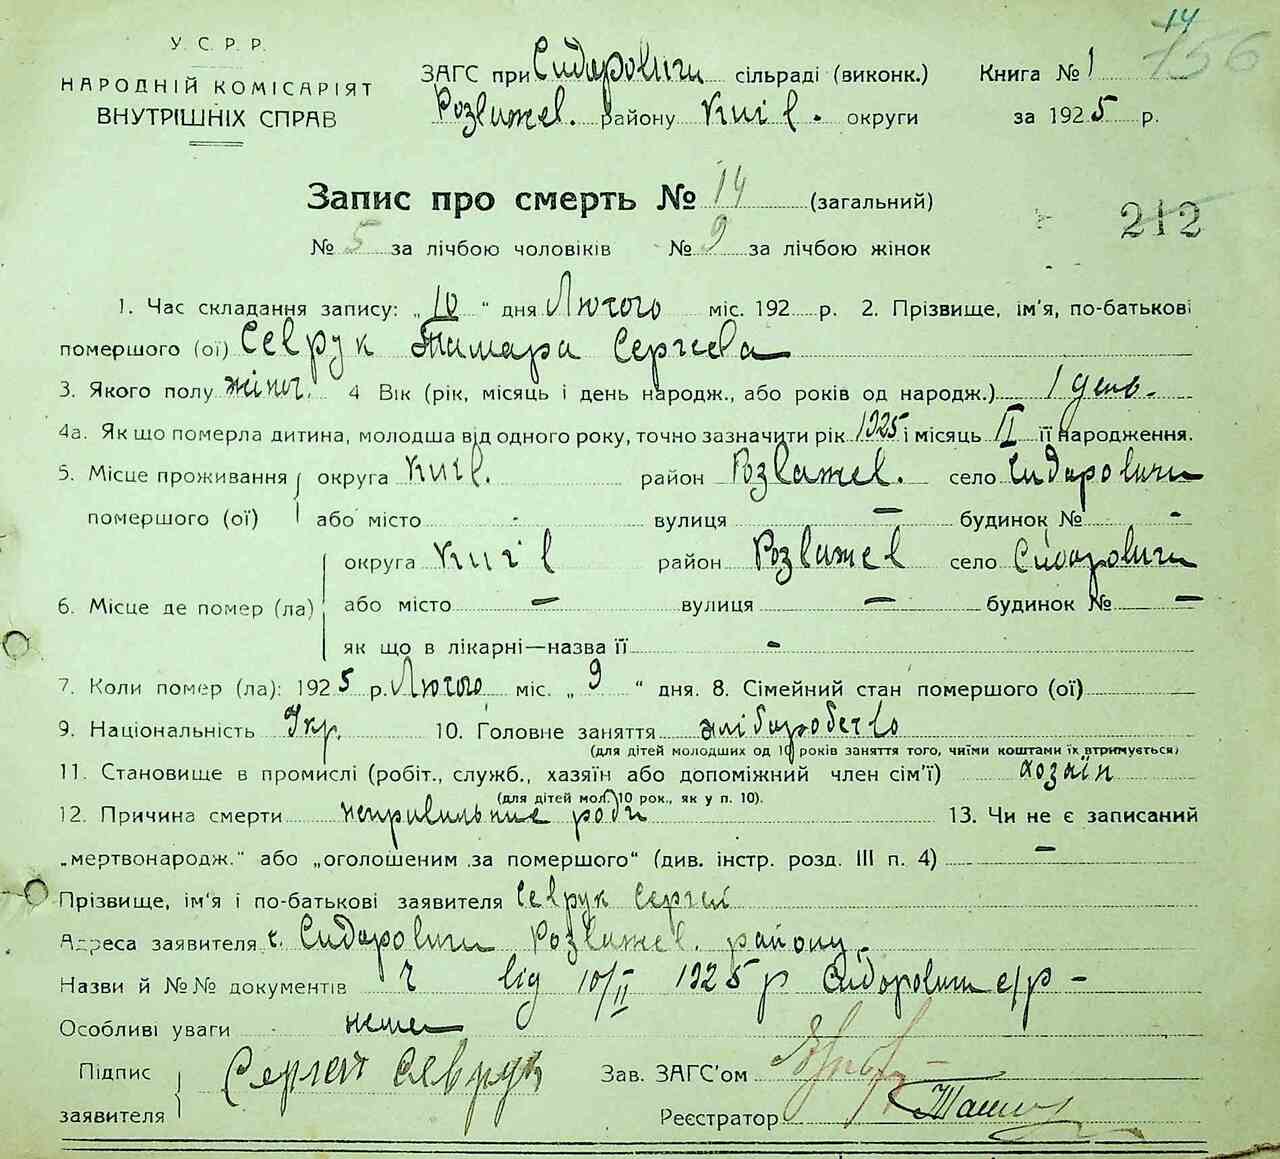 14
156
У. С. Р. Р.
НАРОДНІЙ КОМІСАРІЯТ
ВНУТРІШНІХ СПРАВ
ЗАГС при Сидоровичи сільраді (виконк.) Книга № 1
Розважев. району Київ. округи за 1925 р.
Запис про смерть № 14 (загальний)
212
№ 5 за лічбою чоловіків № 9 за лічбою жінок
1. Час складання запису: „10“ дня Лютого міс. 192 р. 2. Прізвище, ім'я, по-батькові
помершого (ої) Севрук Тамара Сергеева
3. Якого полу жіноч. 4 Вік (рік, місяць і день народж., або років од народж.) 1 день.
4а. Як що померла дитина, молодша від одного року, точно зазначити рік 1925 і місяць II її народження.
5. Місце проживання округа Київ. район Розважев. село Сидоровичи
помершого (ої) або місто - вулиця — будинок № -
округа Київ район Розважев село Сидоровичи
6. Місце де помер (ла) або місто — вулиця — будинок № —
як що в лікарні—назва її -
7. Коли помер (ла): 1925 р. Лютого міс. „9“ дня. 8. Сімейний стан помершого (ої)
9. Національність Укр. 10. Головне заняття хліборобство
(для дітей молодших од 10 років заняття того, чиїми коштами їх втримується)
11. Становище в промислі (робіт., служб., хазяїн або допоміжний член сім'ї) хозяїн
(для дітей мол. 10 рок., як у п. 10).
12. Причина смерти неправильние роди 13. Чи не є записаний
„мертвонародж.“ або „оголошеним за помершого“ (див. інстр. розд. III п. 4) —
Прізвище, ім'я і по-батькові заявителя Севрук Сергей
Адреса заявителя с. Сидоровичи Розважев. району.
Назви й №№ документів від 10/II 1925 р Сидорович с/р -
Особливі уваги нема
Підпис заявителя Сергей Севрук Зав. ЗАГС'ом
Реєстратор